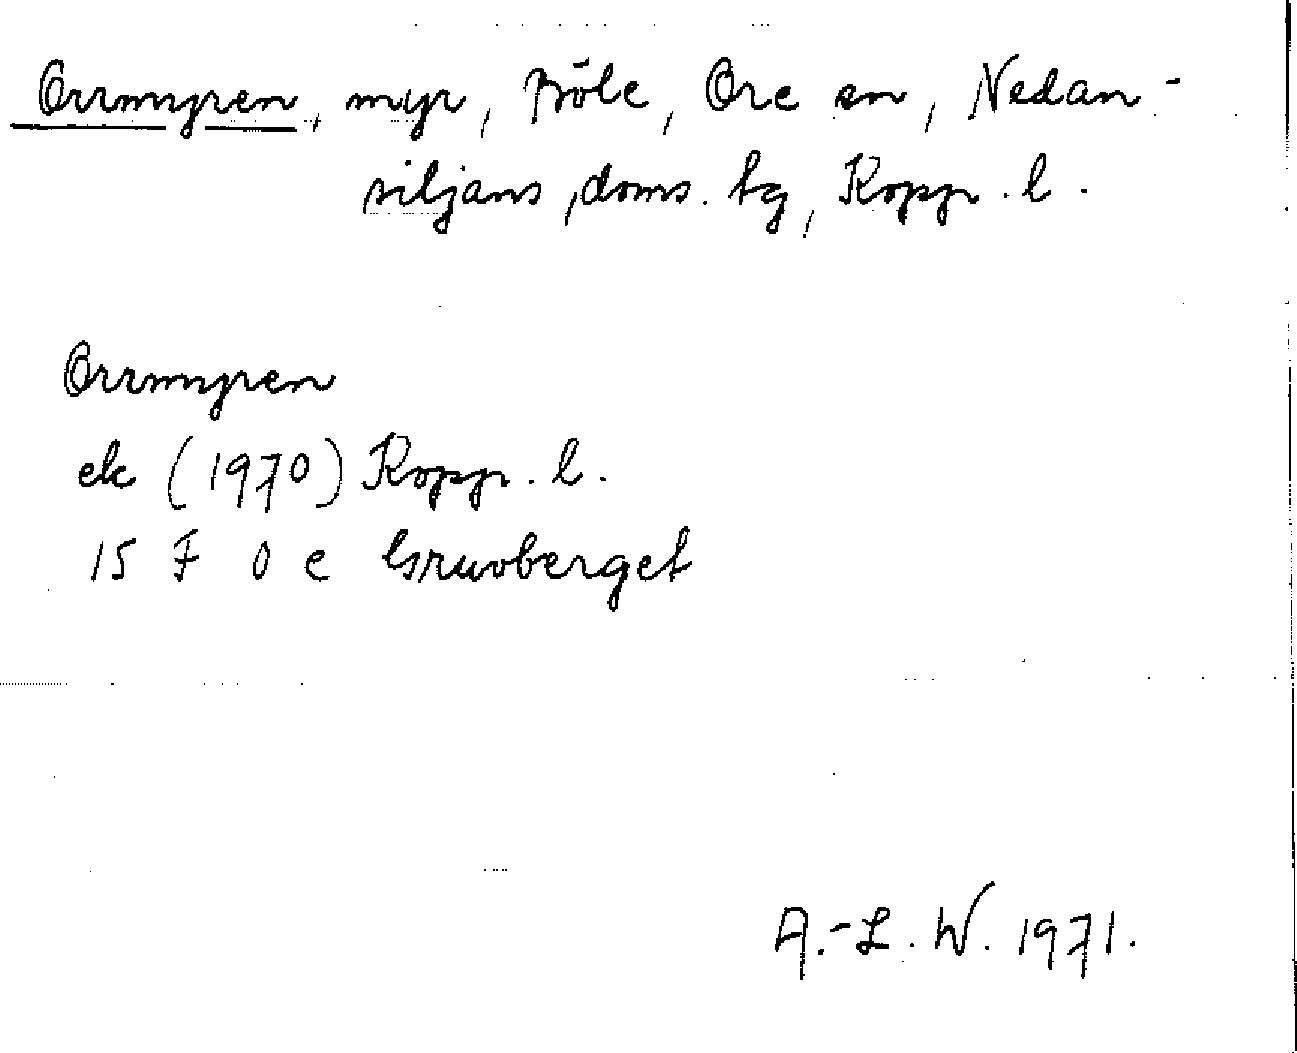 Orrmyren, myr, Böle, Ore sn, Nedan-
siljans, doms. tg, Kopp. l.
Orrmyren
ek (1970) Kopp. l.
15 F 0 e Gruvberget
A.-L. W. 1971.